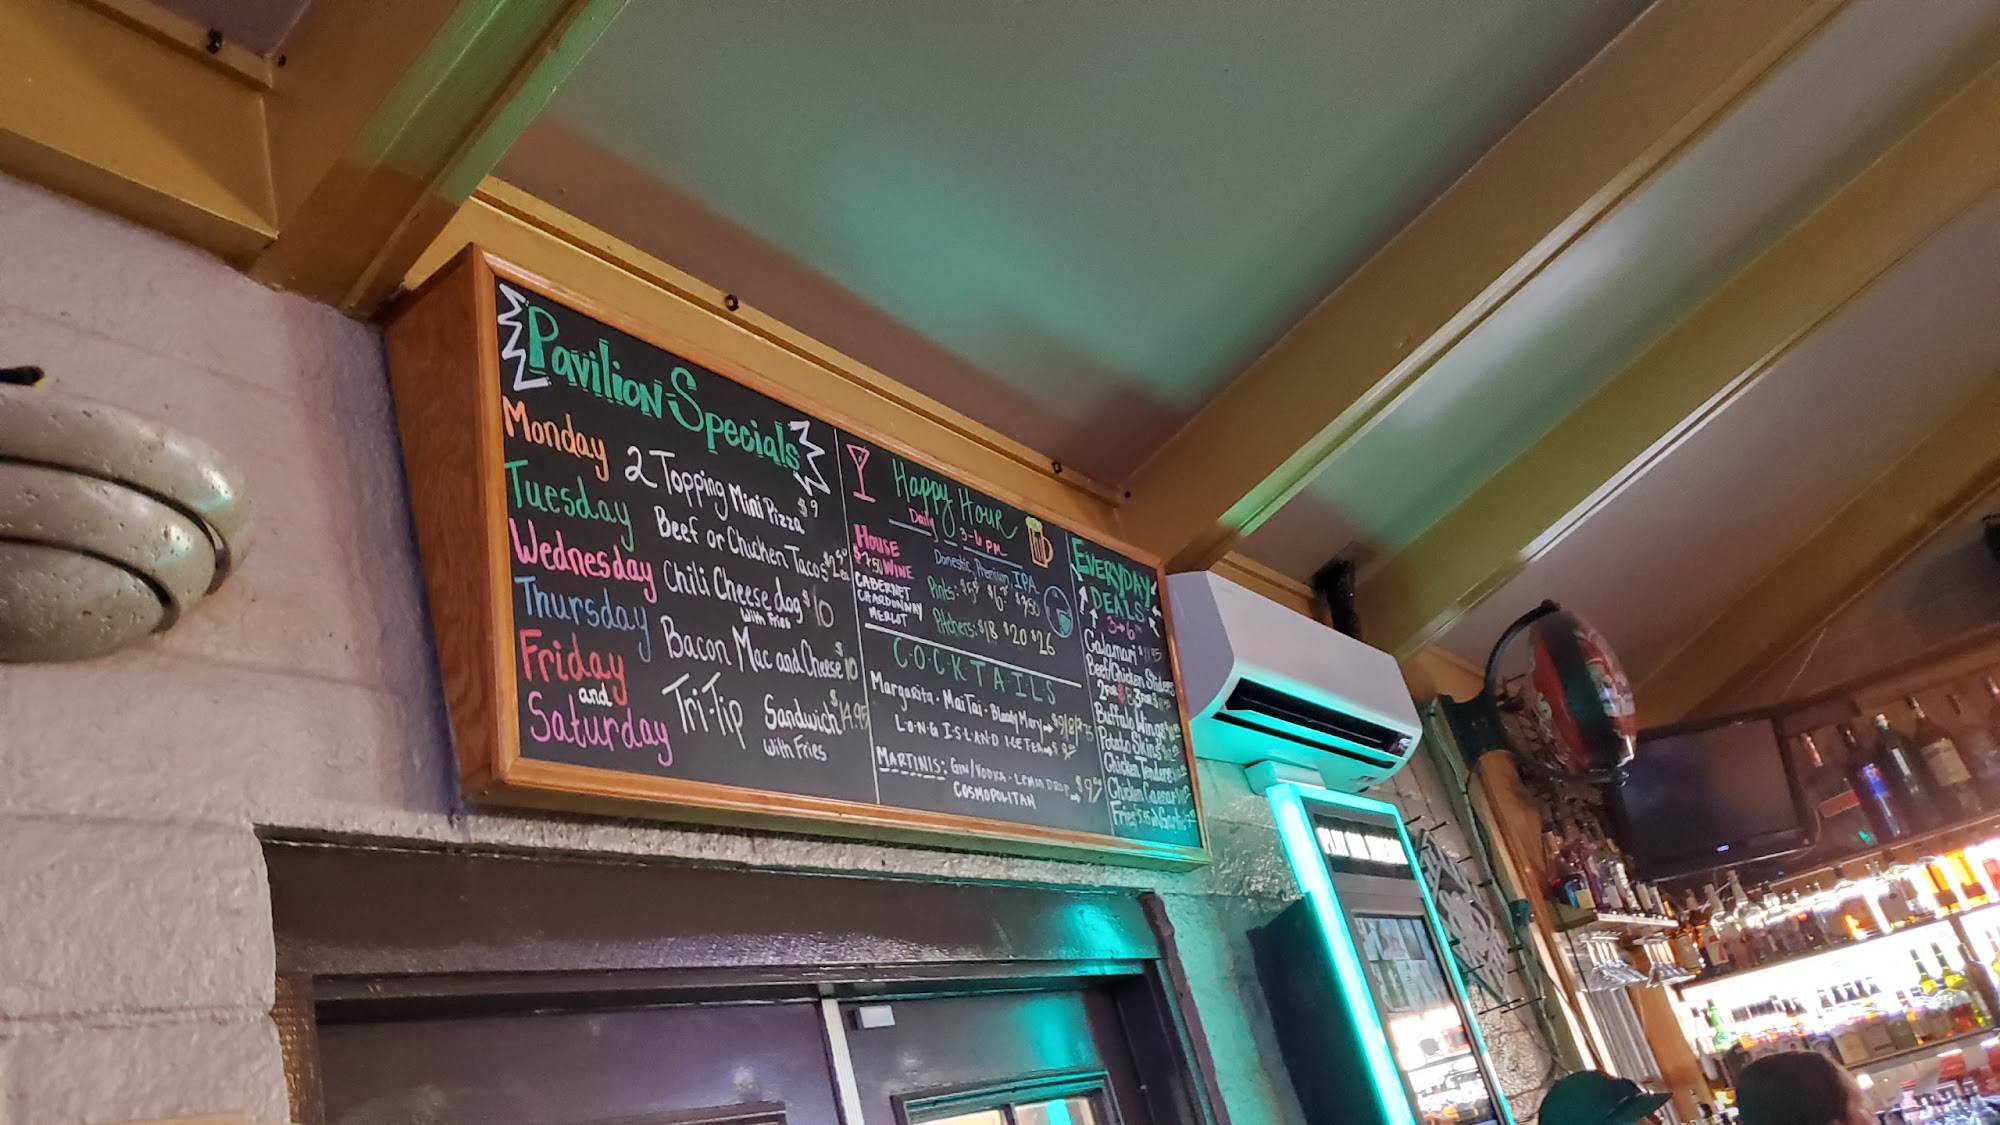 Pavilion Specials
Monday 2 Topping Mini Pizza $9
Tuesday Beef or Chicken Tacos $2.50 ea
Wednesday Chili Cheese dog $10
with Fries
Thursday Bacon Mac and Cheese $10
Friday
and
Saturday
Tri-Tip Sandwich $14.95
with Fries
Happy Hour
Daily 3-6 PM
House
$7.50 Wine
Cabernet
Chardonnay
Merlot
Domestic, Premium, IPA
Pints: $5.5 $6. $7.50
Pitchers: $18 $20 $26
C·O·C·K·T·A·I·L·S
Margarita · Mai Tai · Bloody Mary
L·O·N·G I·S·L·A·N·D ICE TEA
MARTINIS: GIN/VODKA · LEMON DROP
COSMOPOLITAN
EVERYDAY
DEALS
3→6
Calamari $11.95
Beef/Chicken Sliders
2 for 3 for
Buffalo Wings
Potato Skins
Chicken Tenders
Chicken Caesar
Fries Garlic